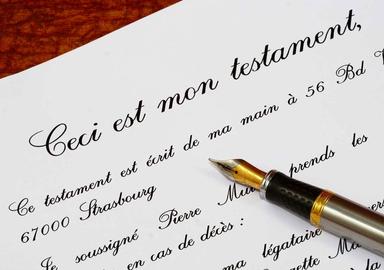 Ceci est mon testament,
Ce testament est écrit de ma main à 56 Bd
67000 Strasbourg
Je soussigné Pierre prends les
en cas de décès :
ma légataire